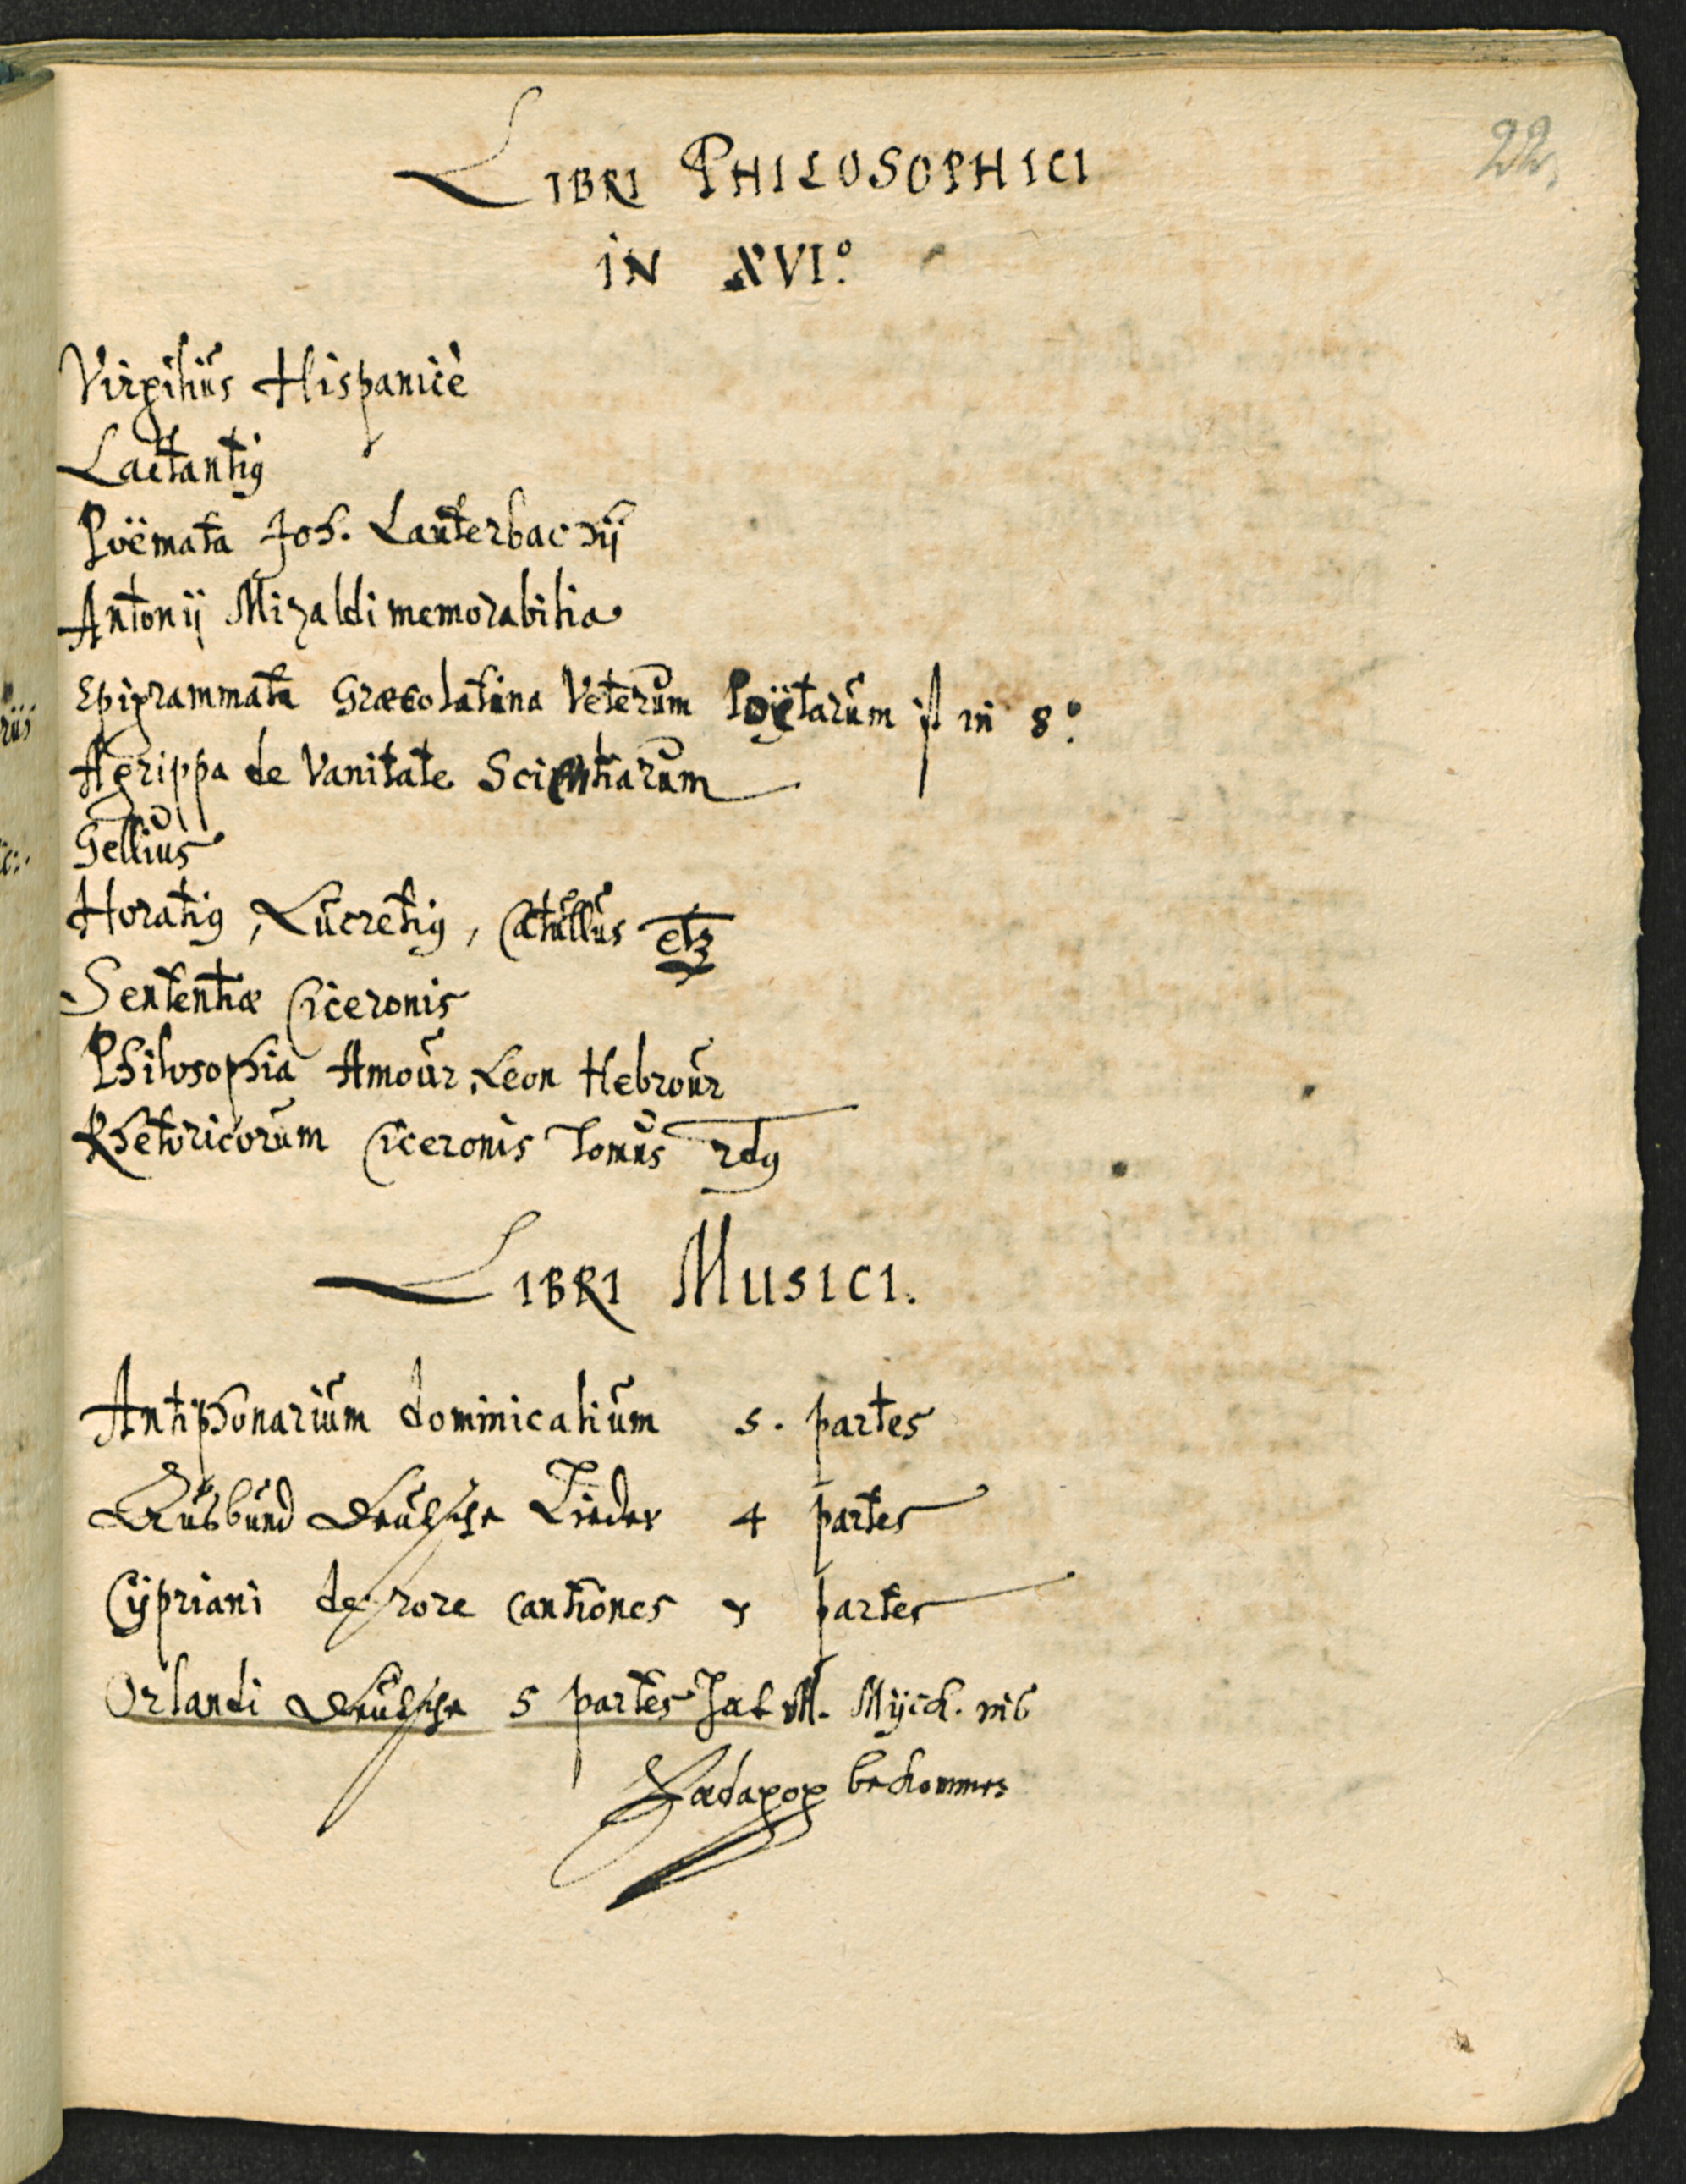 22.
LIBRI PHILOSOPHICI
IN XVI.º
Virgilius Hispanicè
Lactantiꝰ
Poëmata Joh. Lauterbachij
Antonij Mizaldi memorabilia
Epigrammata Græcolatina Veterum Poëtarum ist in 8.º
Agrippa de Vanitate Scientiarum
Gellius
Horatiꝰ, Lucretiꝰ, Catullus etz
Sententiæ Ciceronis
Philosophia Amour, Leon Hebrour
Rhetoricorum Ciceronis Tomus
LIBRI MUSICI.
Antiphonarium dominicalium 5. partes
Außbund Deutsche Lieder 4 partes
Cypriani de rore cantiones partes
Orlandi Deutsche 5 partes hat M. Mÿch.
Pædagog bekommen